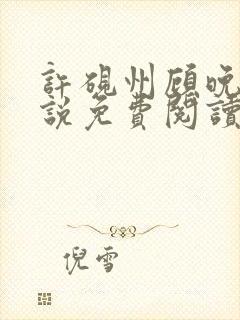 許硯州顾晚
説免費閱讀
倪雪